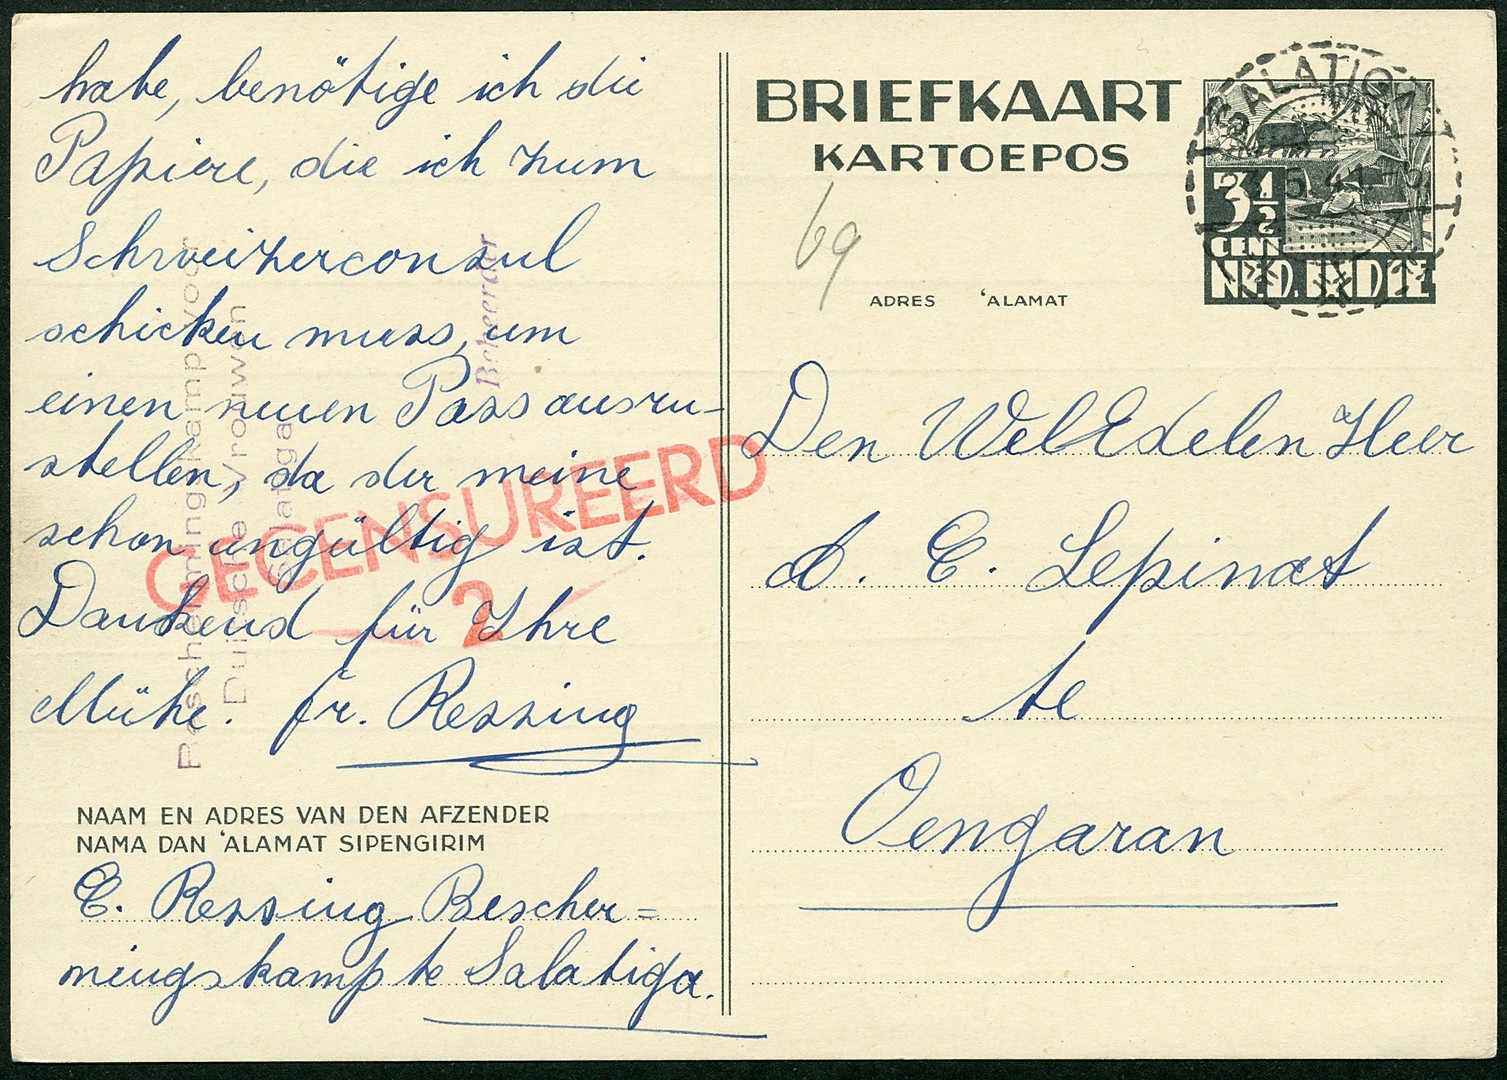 habe, benötige ich die
Papiere, die ich zum
Schweizerconsul
schicken muss, um
einen neuen Pass auszu-
stellen, da der meine
schon ungültig ist.
Dankend für Ihre
Mühe. fr. Ressing
NAAM EN ADRES VAN DEN AFZENDER
NAMA DAN ‘ALAMAT SIPENGIRIM
E. Ressing Bescher=
mingskamp te Salatiga.
Beschermingkamp voor
Duitsche Vrouwen
Salatiga
Beheerder
GECENSUREERD
2
BRIEFKAART
KARTOEPOS
69
ADRES ‘ALAMAT
SALATIGA
27.5.41.
3½
CENT
NED. INDIE
Den WelEdelen Heer
A. E. Lepinat
te
Oengaran